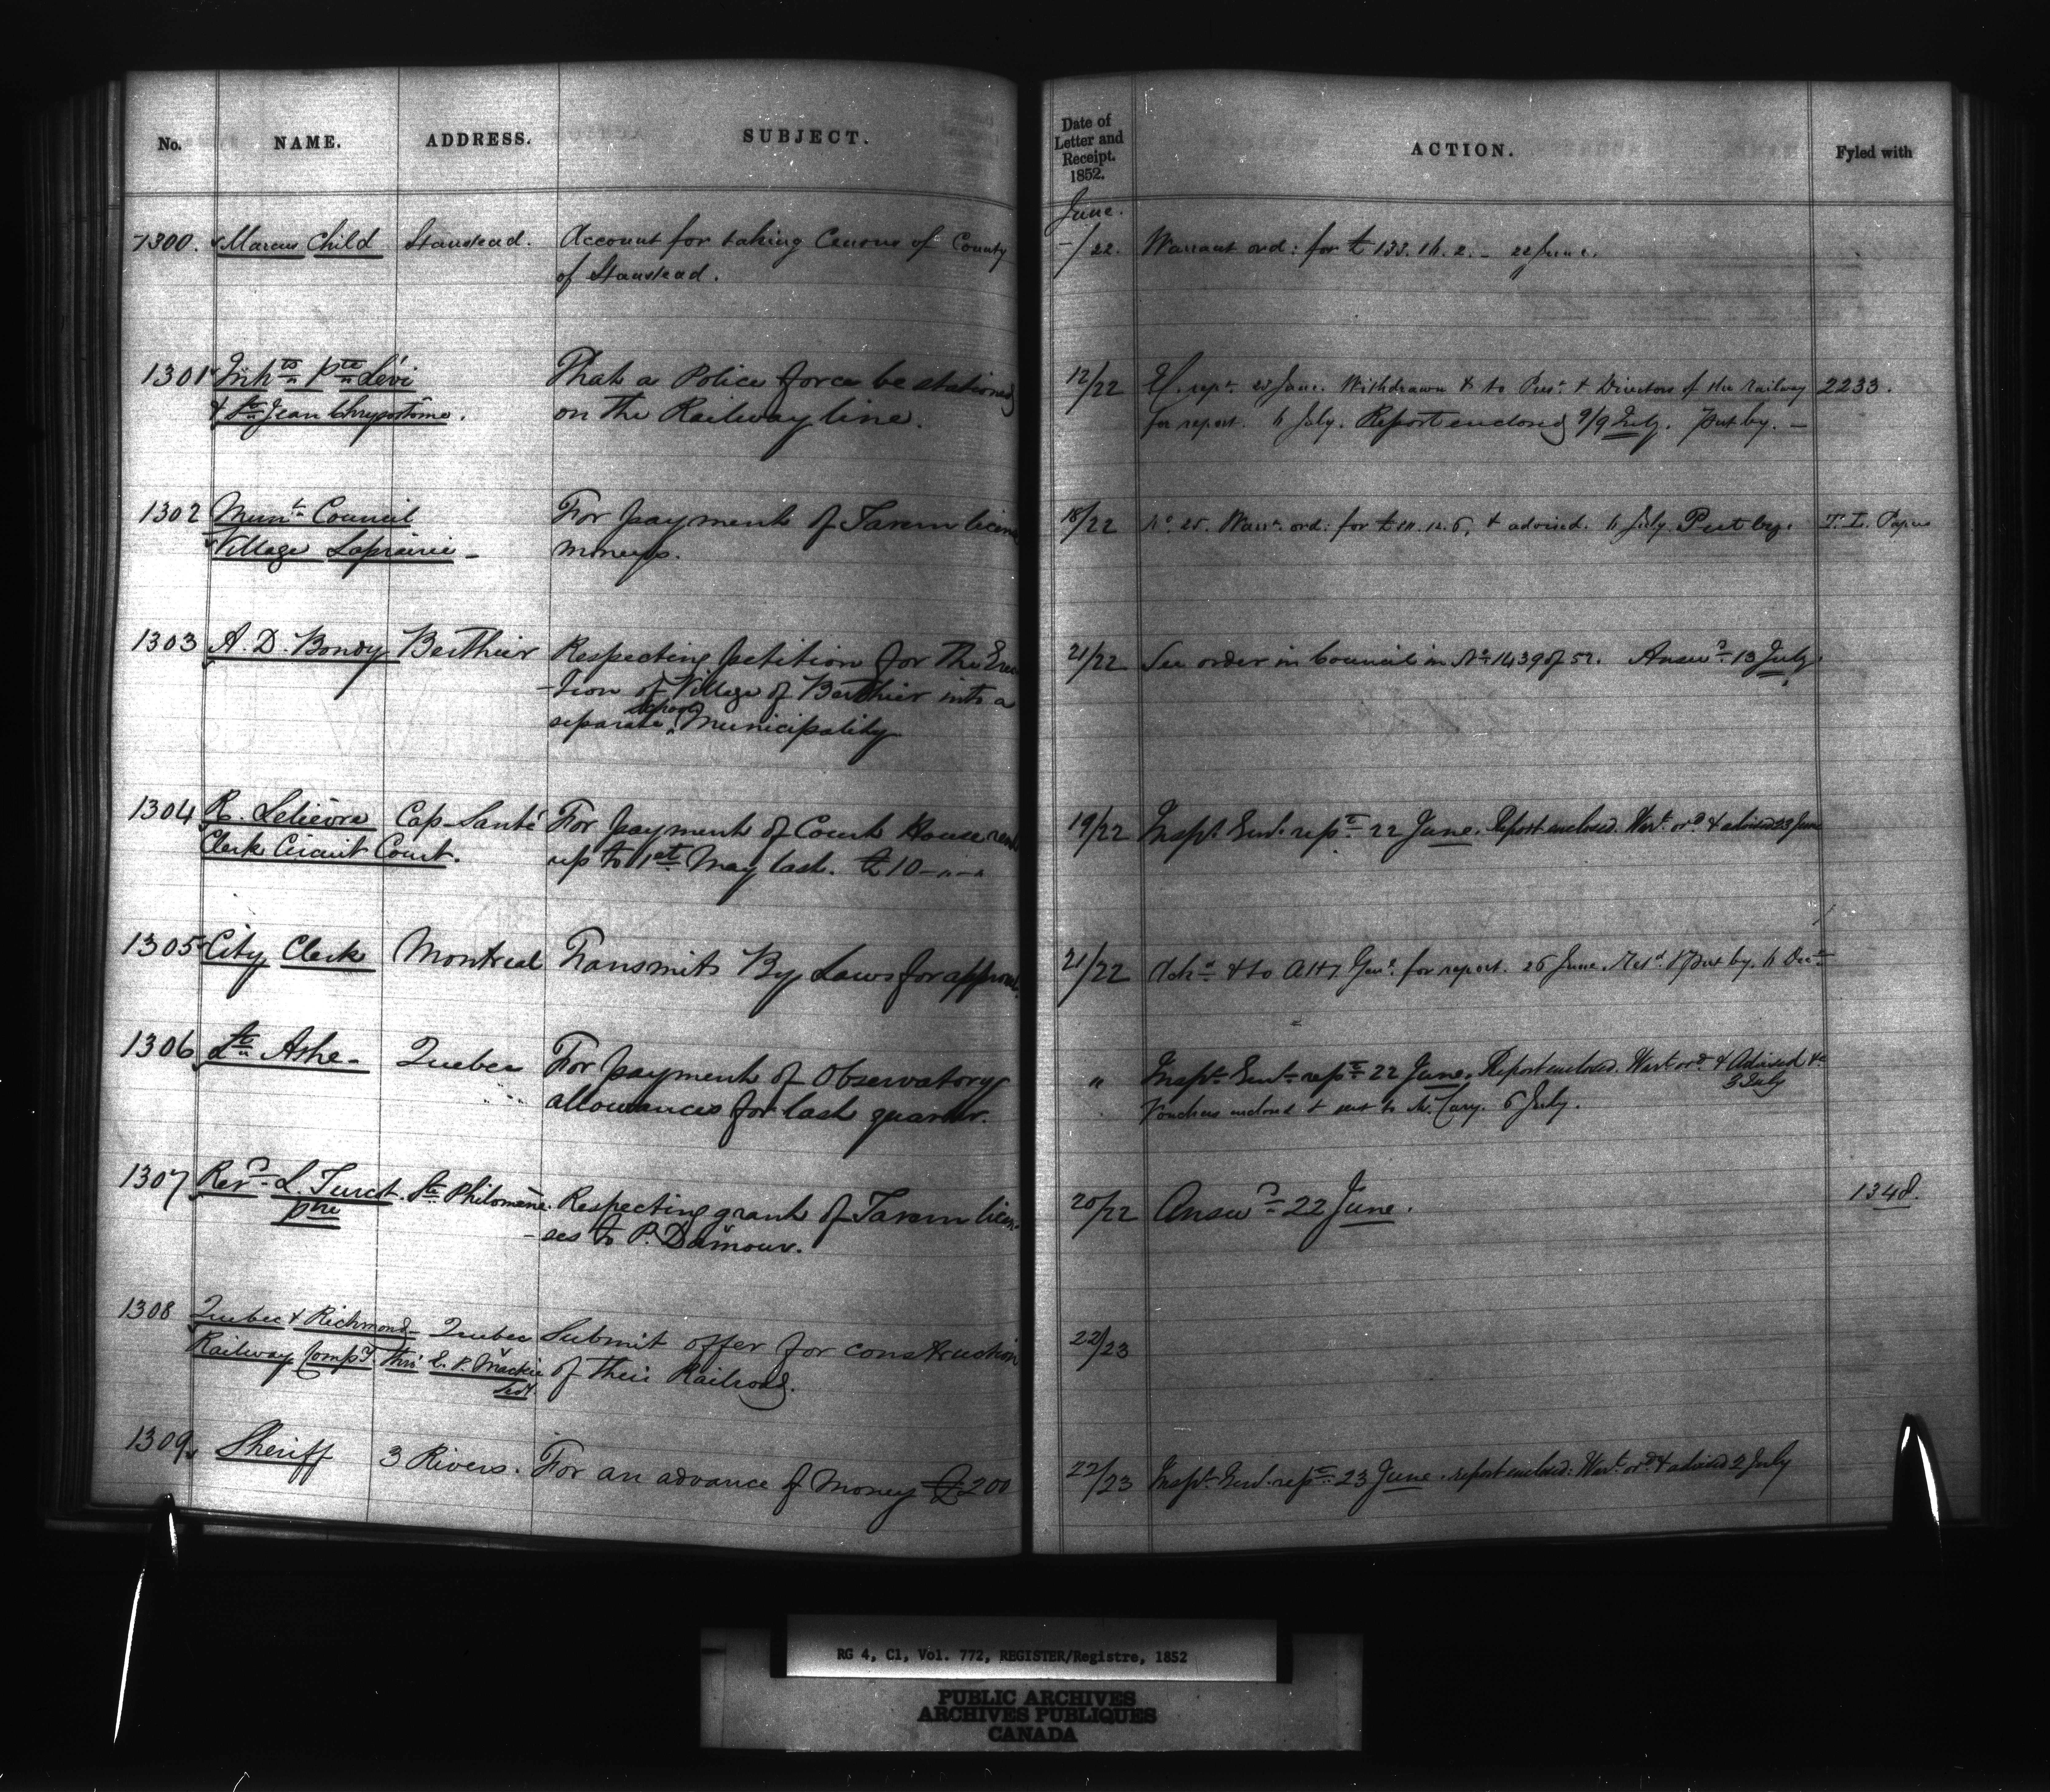 No. NAME. ADDRESS. SUBJECT. Date of Letter and Receipt. 1852. ACTION. Fyled with
June.
1300. Marcus Child Stanstead. Account for taking Census of County -/22. Warrant ord: for £133. 14. 2. - 22 June.
of Stanstead.
1301 Inhts Pte Lévi That a Police force be stationed 12/22 rept. 22 June. Withdrawn & to Prest. & Directors of the railway 2233.
& St Jean Chrysostôme. on the Railway line. for report. 4 July. Report enclosed 9/9 July. Put by. -
1302 Munl. Council For payment of Tavern license 18/22 Warrt. ord: for & advised. 4 July. Put by. T. L. Papers
Village Laprairie - moneys.
1303 A. D. Bondy Berthier Respecting petition for the Erec 21/22 See order in Council in No 1439 of 52. Answd. 13 July.
-tion of Village of Berthier into a
separate school Municipality
1304 R. Lelièvre Cap Santé For payment of Court House rent 19/22 Inspt. Genl. rept. 22 June. Report enclosed. Wart. ord. & advised 23 June
Clerk Circuit Court. up to 1st May last. £10-"-"
1305 City Clerk Montreal Transmits By Laws for approval. 21/22 Ackd. & to Atty Genl. for report. 26 June. Retd. & Put by. 4 Decr.
1306 Lt. Ashe - Quebec For payment of Observatory " Inspt. Genl. rept. 22 June. Report enclosed. Wart ord. & Advised &c
3 July
allowances for last quarter. Vouchers enclosed & sent to Mr. Cary. 6 July.
1307 Revd. L Turcot St. Philomène. Respecting grant of Tavern licen- 20/22 Answd. 22 June. 1348.
ptre -ses to P. Damour.
1308 Quebec & Richmond Quebec Submit offer for construction 22/23
Railway Compy. thro' E. P. Mackie of their Railroad.
Sect.
1309 Sheriff 3 Rivers. For an advance of Money £200 22/23 Inspt. Genl. rept. 23 June. report enclosed. Wart. ord. & advised 2 July
RG 4, C1, Vol. 772, REGISTER/Registre, 1852
PUBLIC ARCHIVES
ARCHIVES PUBLIQUES
CANADA